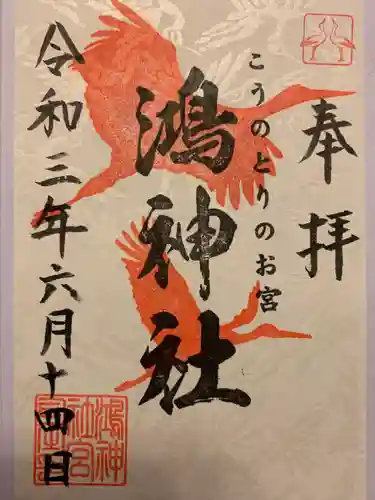 奉拝
こうのとりのお宮
鴻神社
令和三年六月十四日